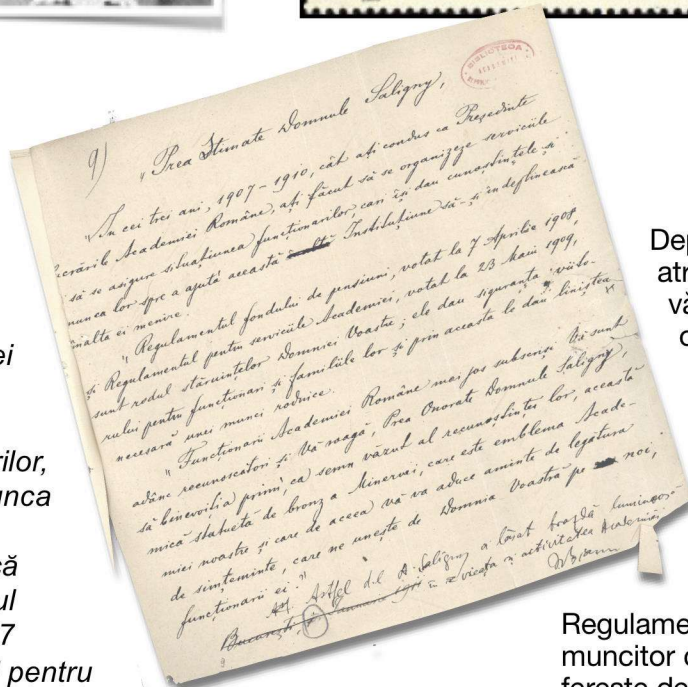 9)
"Prea Stimate Domnule Saligny,
"În cei trei ani, 1907-1910, cât ați condus ca Președinte
lucrările Academiei Române, ați făcut să se organizeze serviciile
și să se asigure situațiunea funcționarilor, cari își dau cunoștințele și
munca lor spre a ajuta această Instituțiune să-și îndeplinească
înalta ei menire.
"Regulamentul fondului de pensiuni, votat la 7 Aprilie 1908,
și Regulamentul pentru serviciile Academiei, votat la 23 Maiu 1909,
sunt rodul stăruințelor Domniei Voastre; ele dau siguranța viito-
rului pentru funcționari și familiile lor și prin aceasta le dau liniștea
necesară unei munci rodnice.
"Funcționarii Academiei Române mai jos subscriși Vă sunt
adânc recunoscători și Vă roagă, Prea Onorate Domnule Saligny,
să binevoiți a primi, ca semn văzut al recunoștinței lor, această
mică statuetă de bronz a Minervei, care este emblema Acade-
miei noastre și care de aceea vă va aduce aminte de legătura
de simțeminte, care ne unește de Domnia Voastră pe noi,
funcționarii ei."
Astfel d-l A. Saligny a lăsat brazdă luminoasă
București
în viața și activitatea Academiei
BIBLIOTECA
ei
rilor,
unca
că
ul
7
i pentru
Dep
atr
vă
c
Regulame
muncitor c